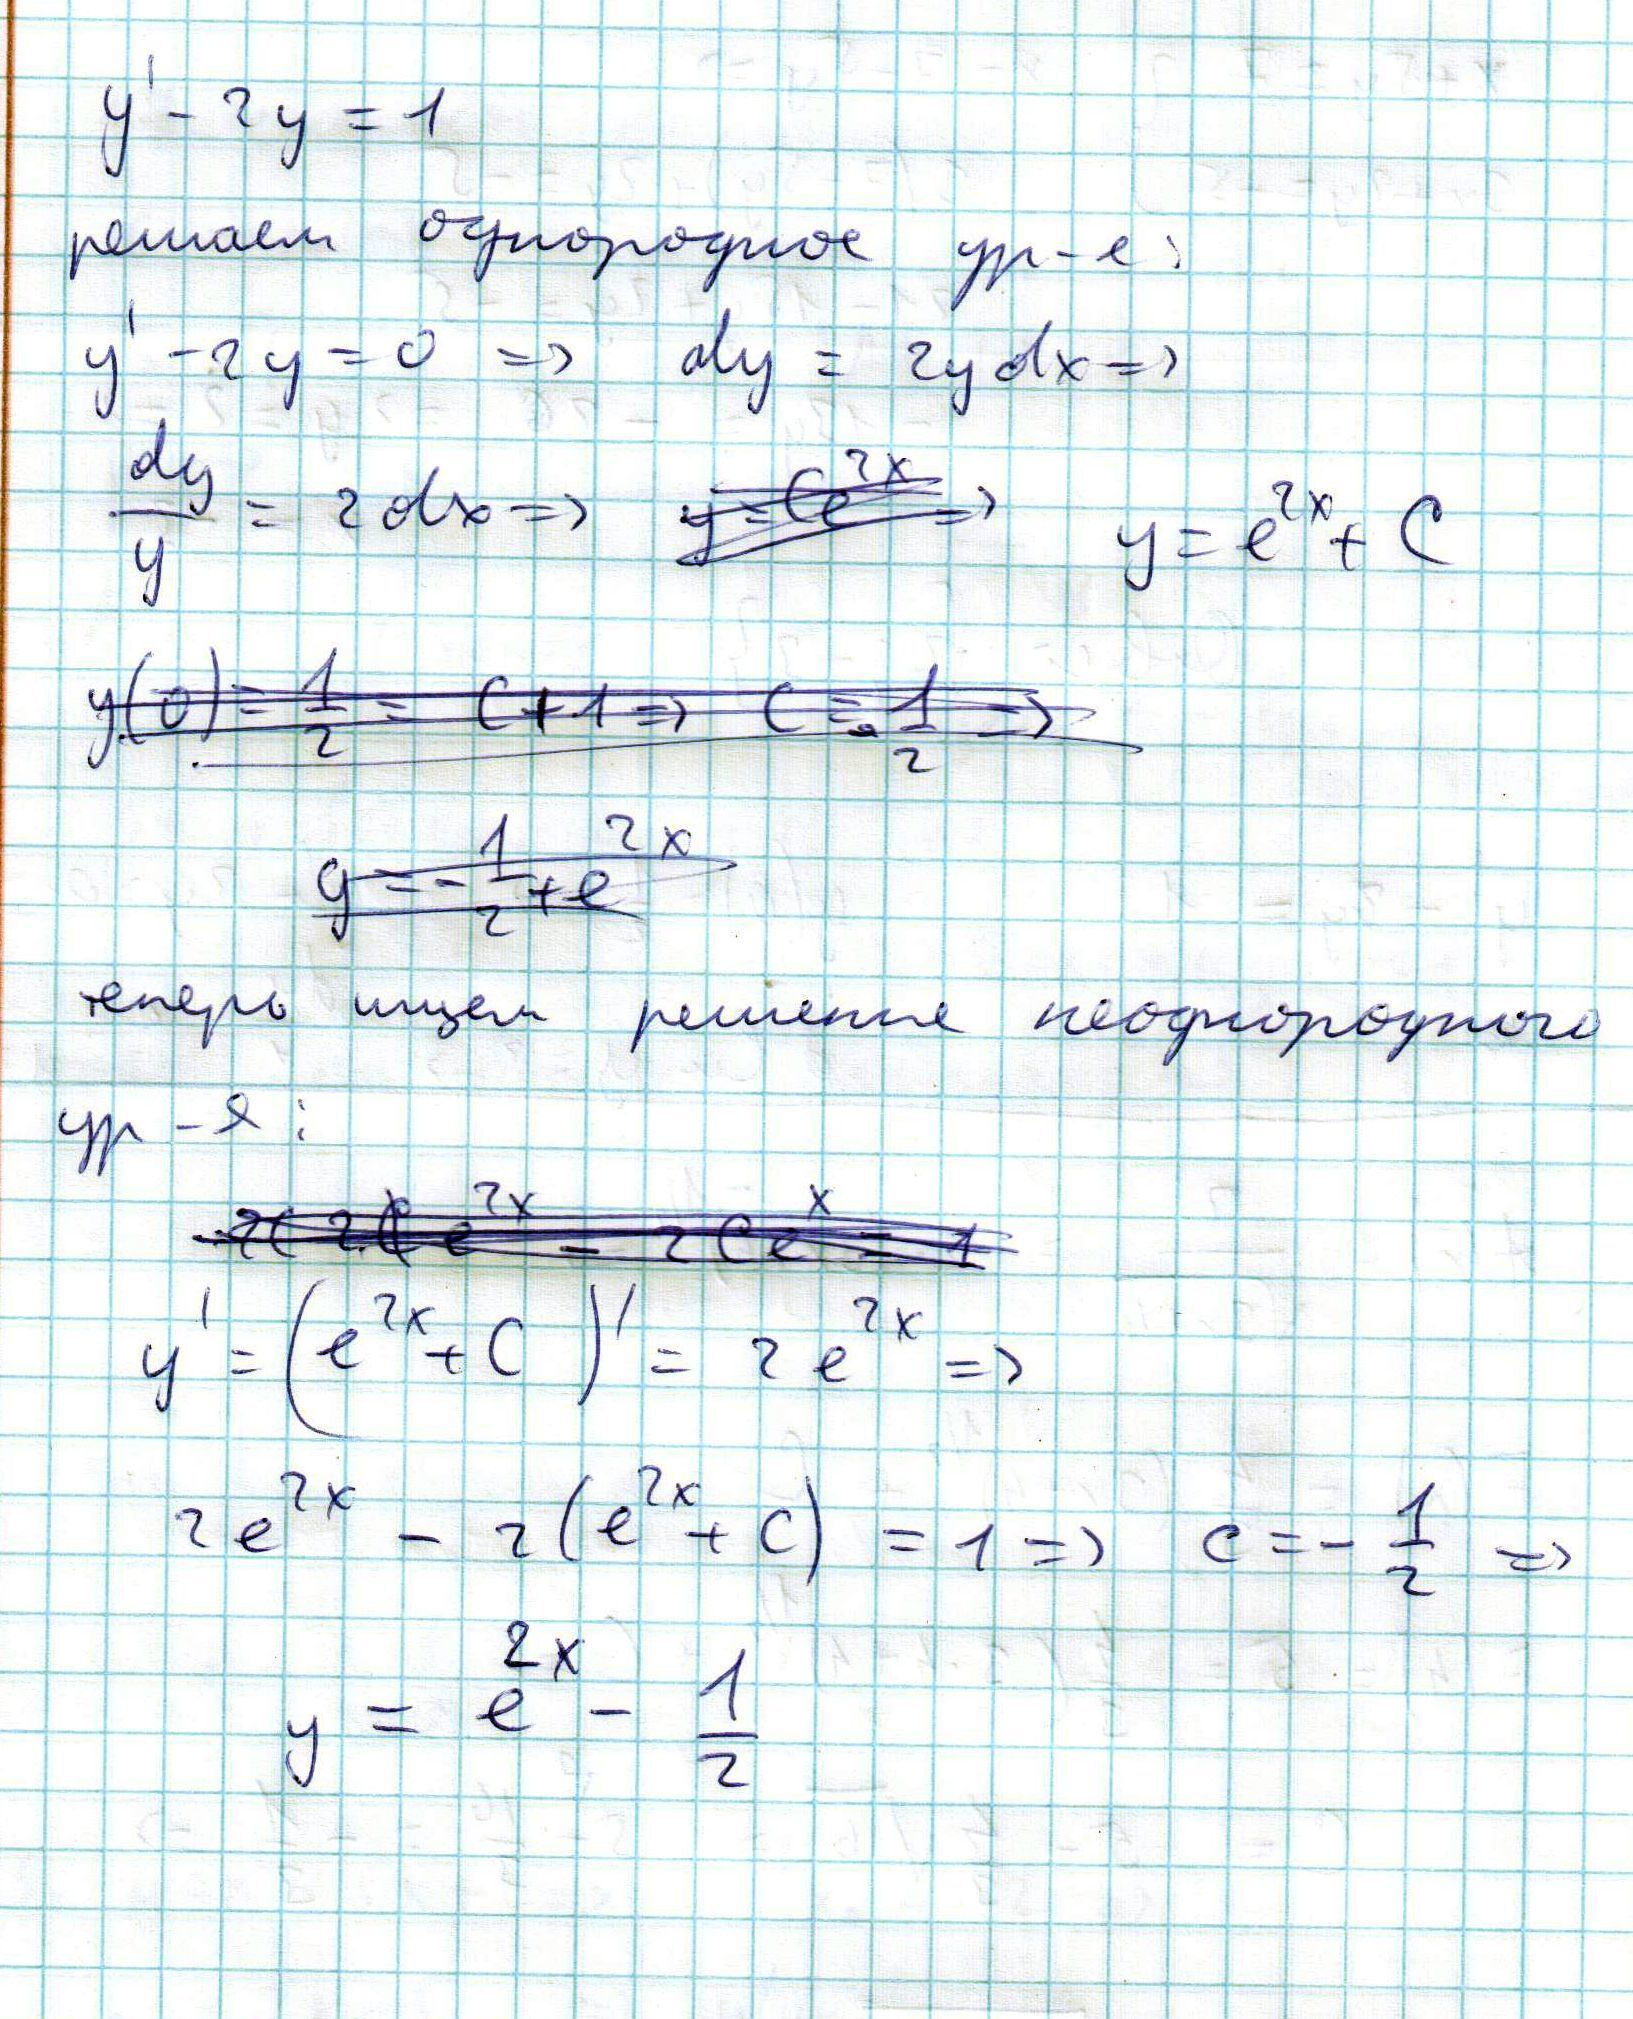 y' - 2y = 1
решаем однородное ур-е:
y' - 2y = 0 => dy = 2y dx =>
dy/y = 2dx => y = Ce^{2x} => y = e^{2x} + C
y(0) = 1/2 = C + 1 => C = -1/2 =>
y = -1/2 + e^{2x}
теперь ищем решение неоднородного
ур-я:
y' = (e^{2x} + C)' = 2e^{2x} =>
2e^{2x} - 2(e^{2x} + C) = 1 => c = -1/2 =>
y = e^{2x} - 1/2